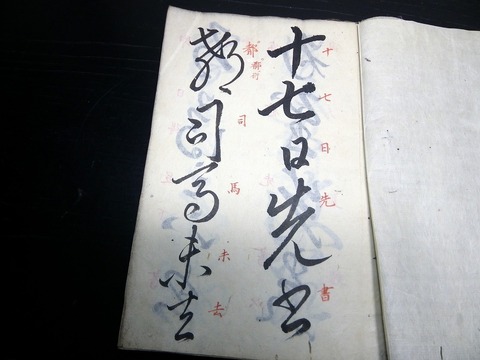 十七日先書
十七日先書
郗司馬未去
都司馬未去